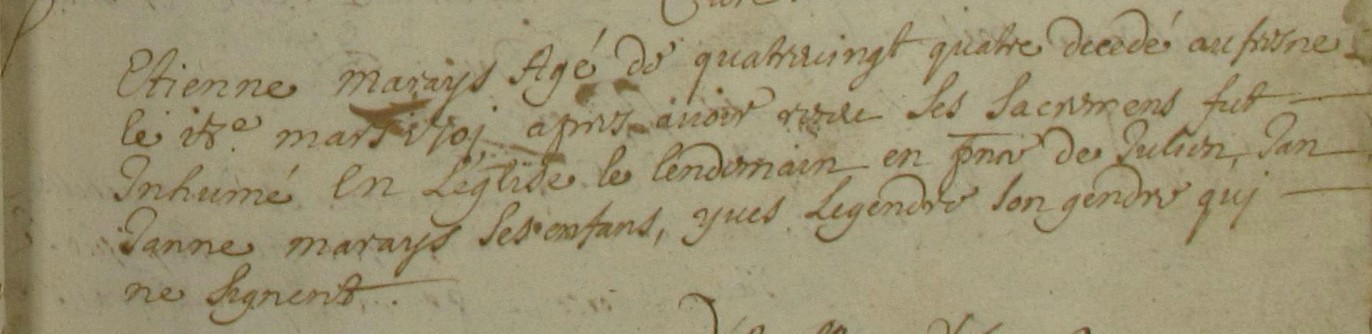 Etienne marays Agé de quatrevingt quatre decedé au fresne
le 18.e mars 1701 apres auoir receu ses sacremens fut
Inhumé En L'église le lendemain en pnce de Julien, Jan
Janne marays ses enfans, yues Legendre son gendre qui
ne signent.